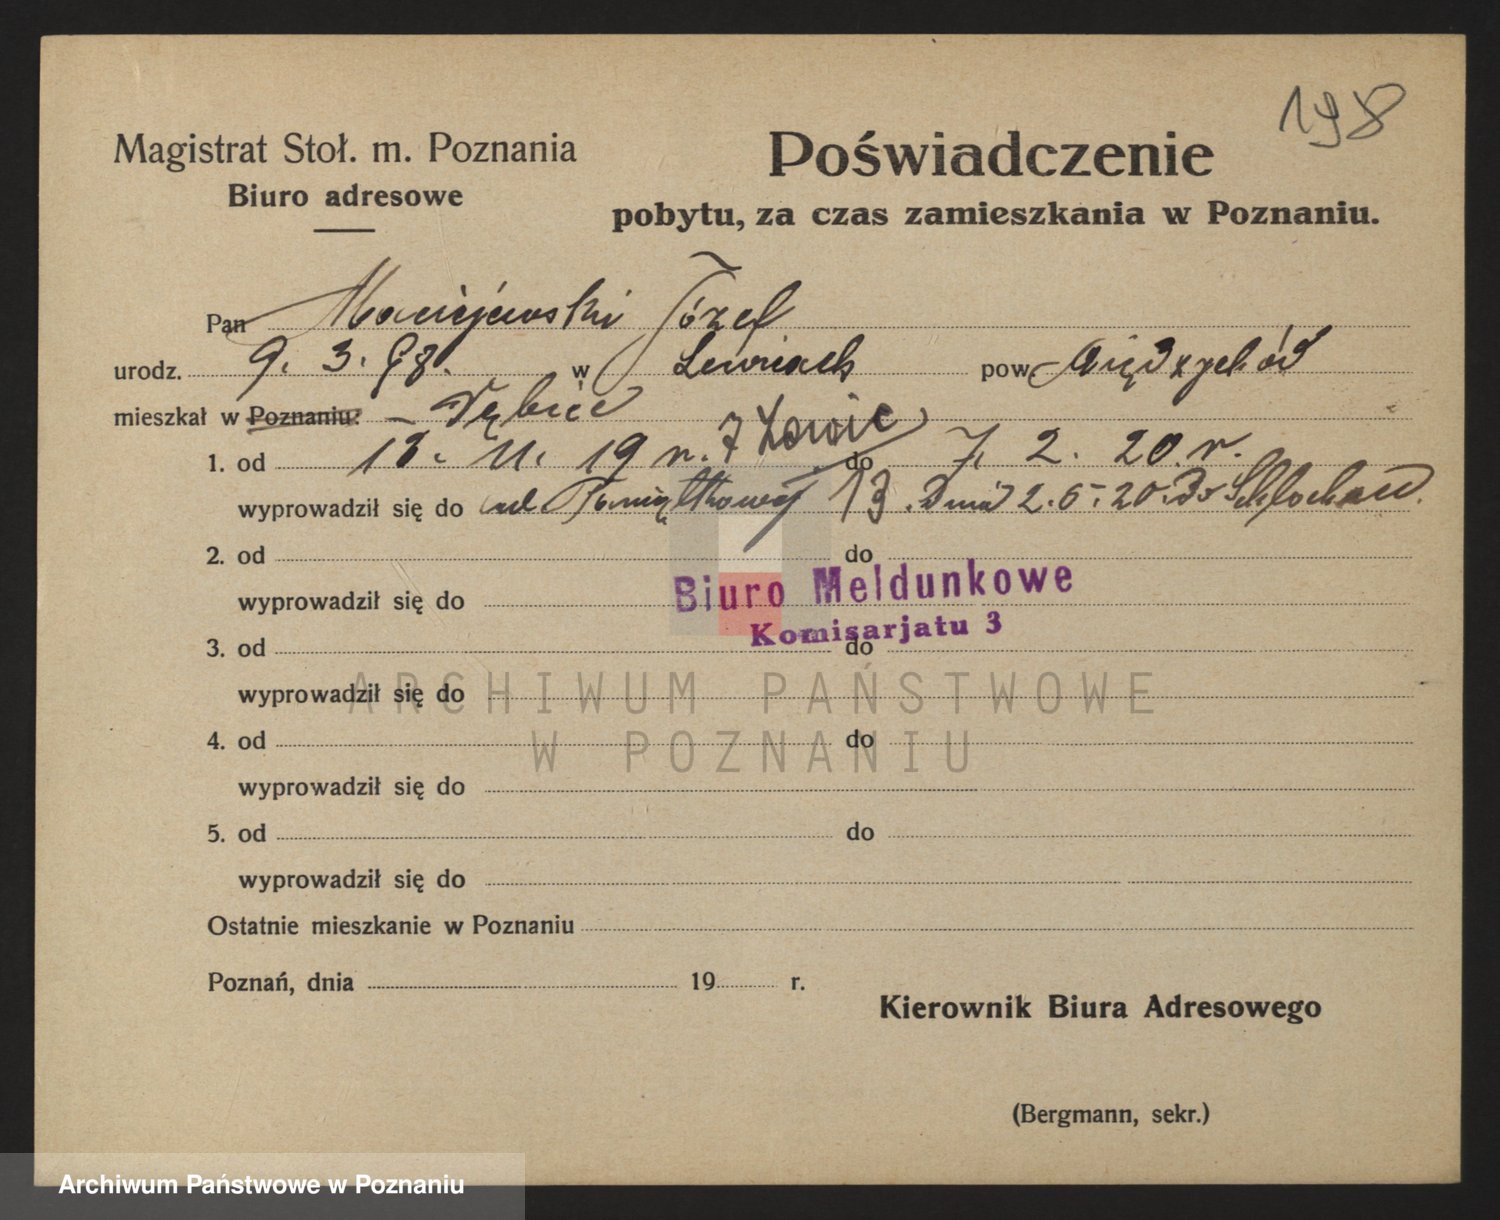 198
Magistrat Stoł. m. Poznania
Biuro adresowe
Poświadczenie
pobytu, za czas zamieszkania w Poznaniu.
Pan Maciejewski Józef
urodz. 9. 3. 98. w pow. Międzychód
mieszkał w Poznaniu: – Dębiec
1. od 18. 11. 19 r. do 7. 2. 20 r.
wyprowadził się do ul Pamiątkowej 13. Dnia 2. 6. 20. do Schlochau.
2. od do
wyprowadził się do
Biuro Meldunkowe
Komisarjatu 3
3. od do
wyprowadził się do
4. od do
wyprowadził się do
5. od do
wyprowadził się do
Ostatnie mieszkanie w Poznaniu
Poznań, dnia 19 r.
Kierownik Biura Adresowego
(Bergmann, sekr.)
ARCHIWUM PAŃSTWOWE
W POZNANIU
Archiwum Państwowe w Poznaniu